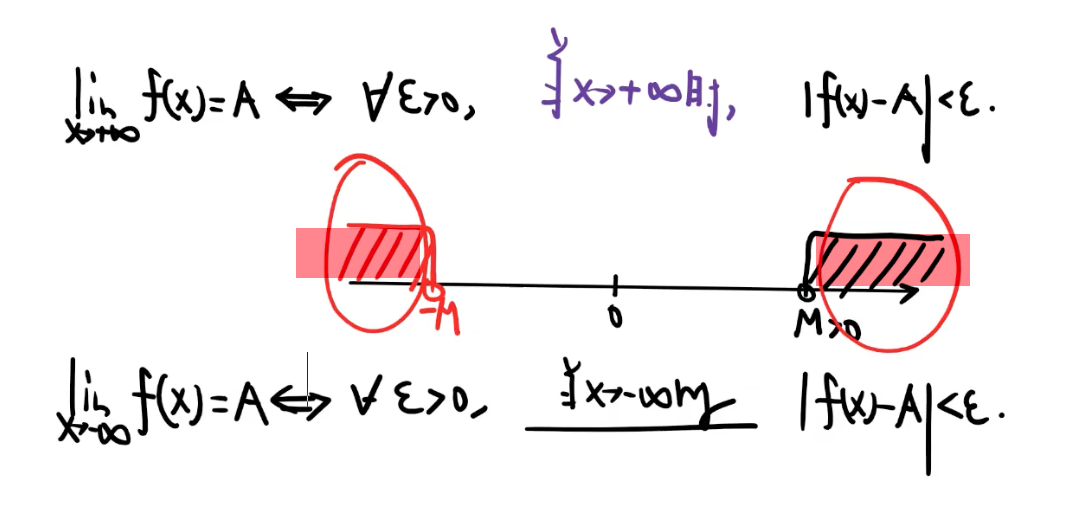 lim f(x)=A ⟺ ∀ε>0, 当x→+∞时, |f(x)-A|<ε.
x→+∞
-M 0 M>0
lim f(x)=A⟺ ∀ ε>0, 当x→-∞时 |f(x)-A|<ε.
x→-∞